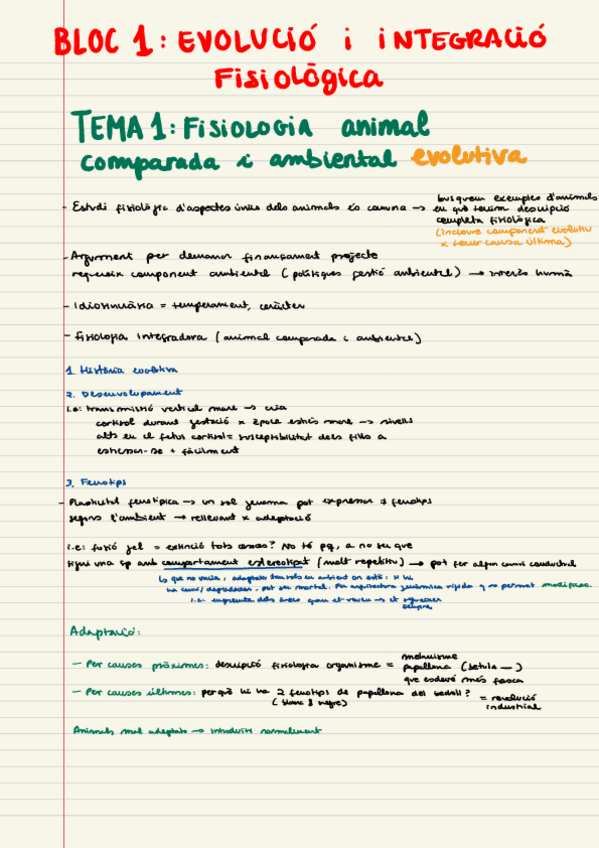 BLOC 1: EVOLUCIÓ i INTEGRACIÓ
FISIOLÒGICA
TEMA 1: FISIOLOGIA animal
comparada i ambiental evolutiva
- Estudi fisiològic d'aspectes únics dels animals és comuna → busquem exemples d'animals
en què tenim descripció
completa fisiològica
(incloure component evolutiu
x tenir causa última)
- Argument per demanar finançament projecte
requereix component ambiental (polítiques gestió ambiental) → interès humà
- Idiosincràsia = temperament, caràcter
- Fisiologia integradora (animal comparada i ambiental)
1. Història evolutiva
2. Desenvolupament
i.e: transmissió vertical mare → cria
cortisol durant gestació x època estrès mare → nivells
alts en el fetus cortisol = susceptibilitat dels fills a
estressar-se + fàcilment
3. Fenotips
- Plasticitat fenotípica → un sol genoma pot expressar ≠ fenotips
segons l'ambient → rellevant x adaptació
i.e: fusió gel = extinció tots ossos? No té pq, a no ser que
sigui una sp amb comportament estereotipat (molt repetitiu) → pot fer algun canvi conductual
lo que no varia, adaptats tan sols en ambient on està: si hi
ha canvi/depredador, pot ser mortal. Per arquitectura genòmica rígida q no permet modificac.
i.e: empremta dels ànecs quan et veuen → et segueixen
sempre
Adaptació:
- Per causes pròximes: descripció fisiologia organisme = melanisme
papallona (betula —)
que esdevé més fosca
- Per causes últimes: per què hi ha 2 fenotips de papallona del bedoll? = revolució
industrial
(blanc & negre)
Animals mal adaptats → introduïts normalment